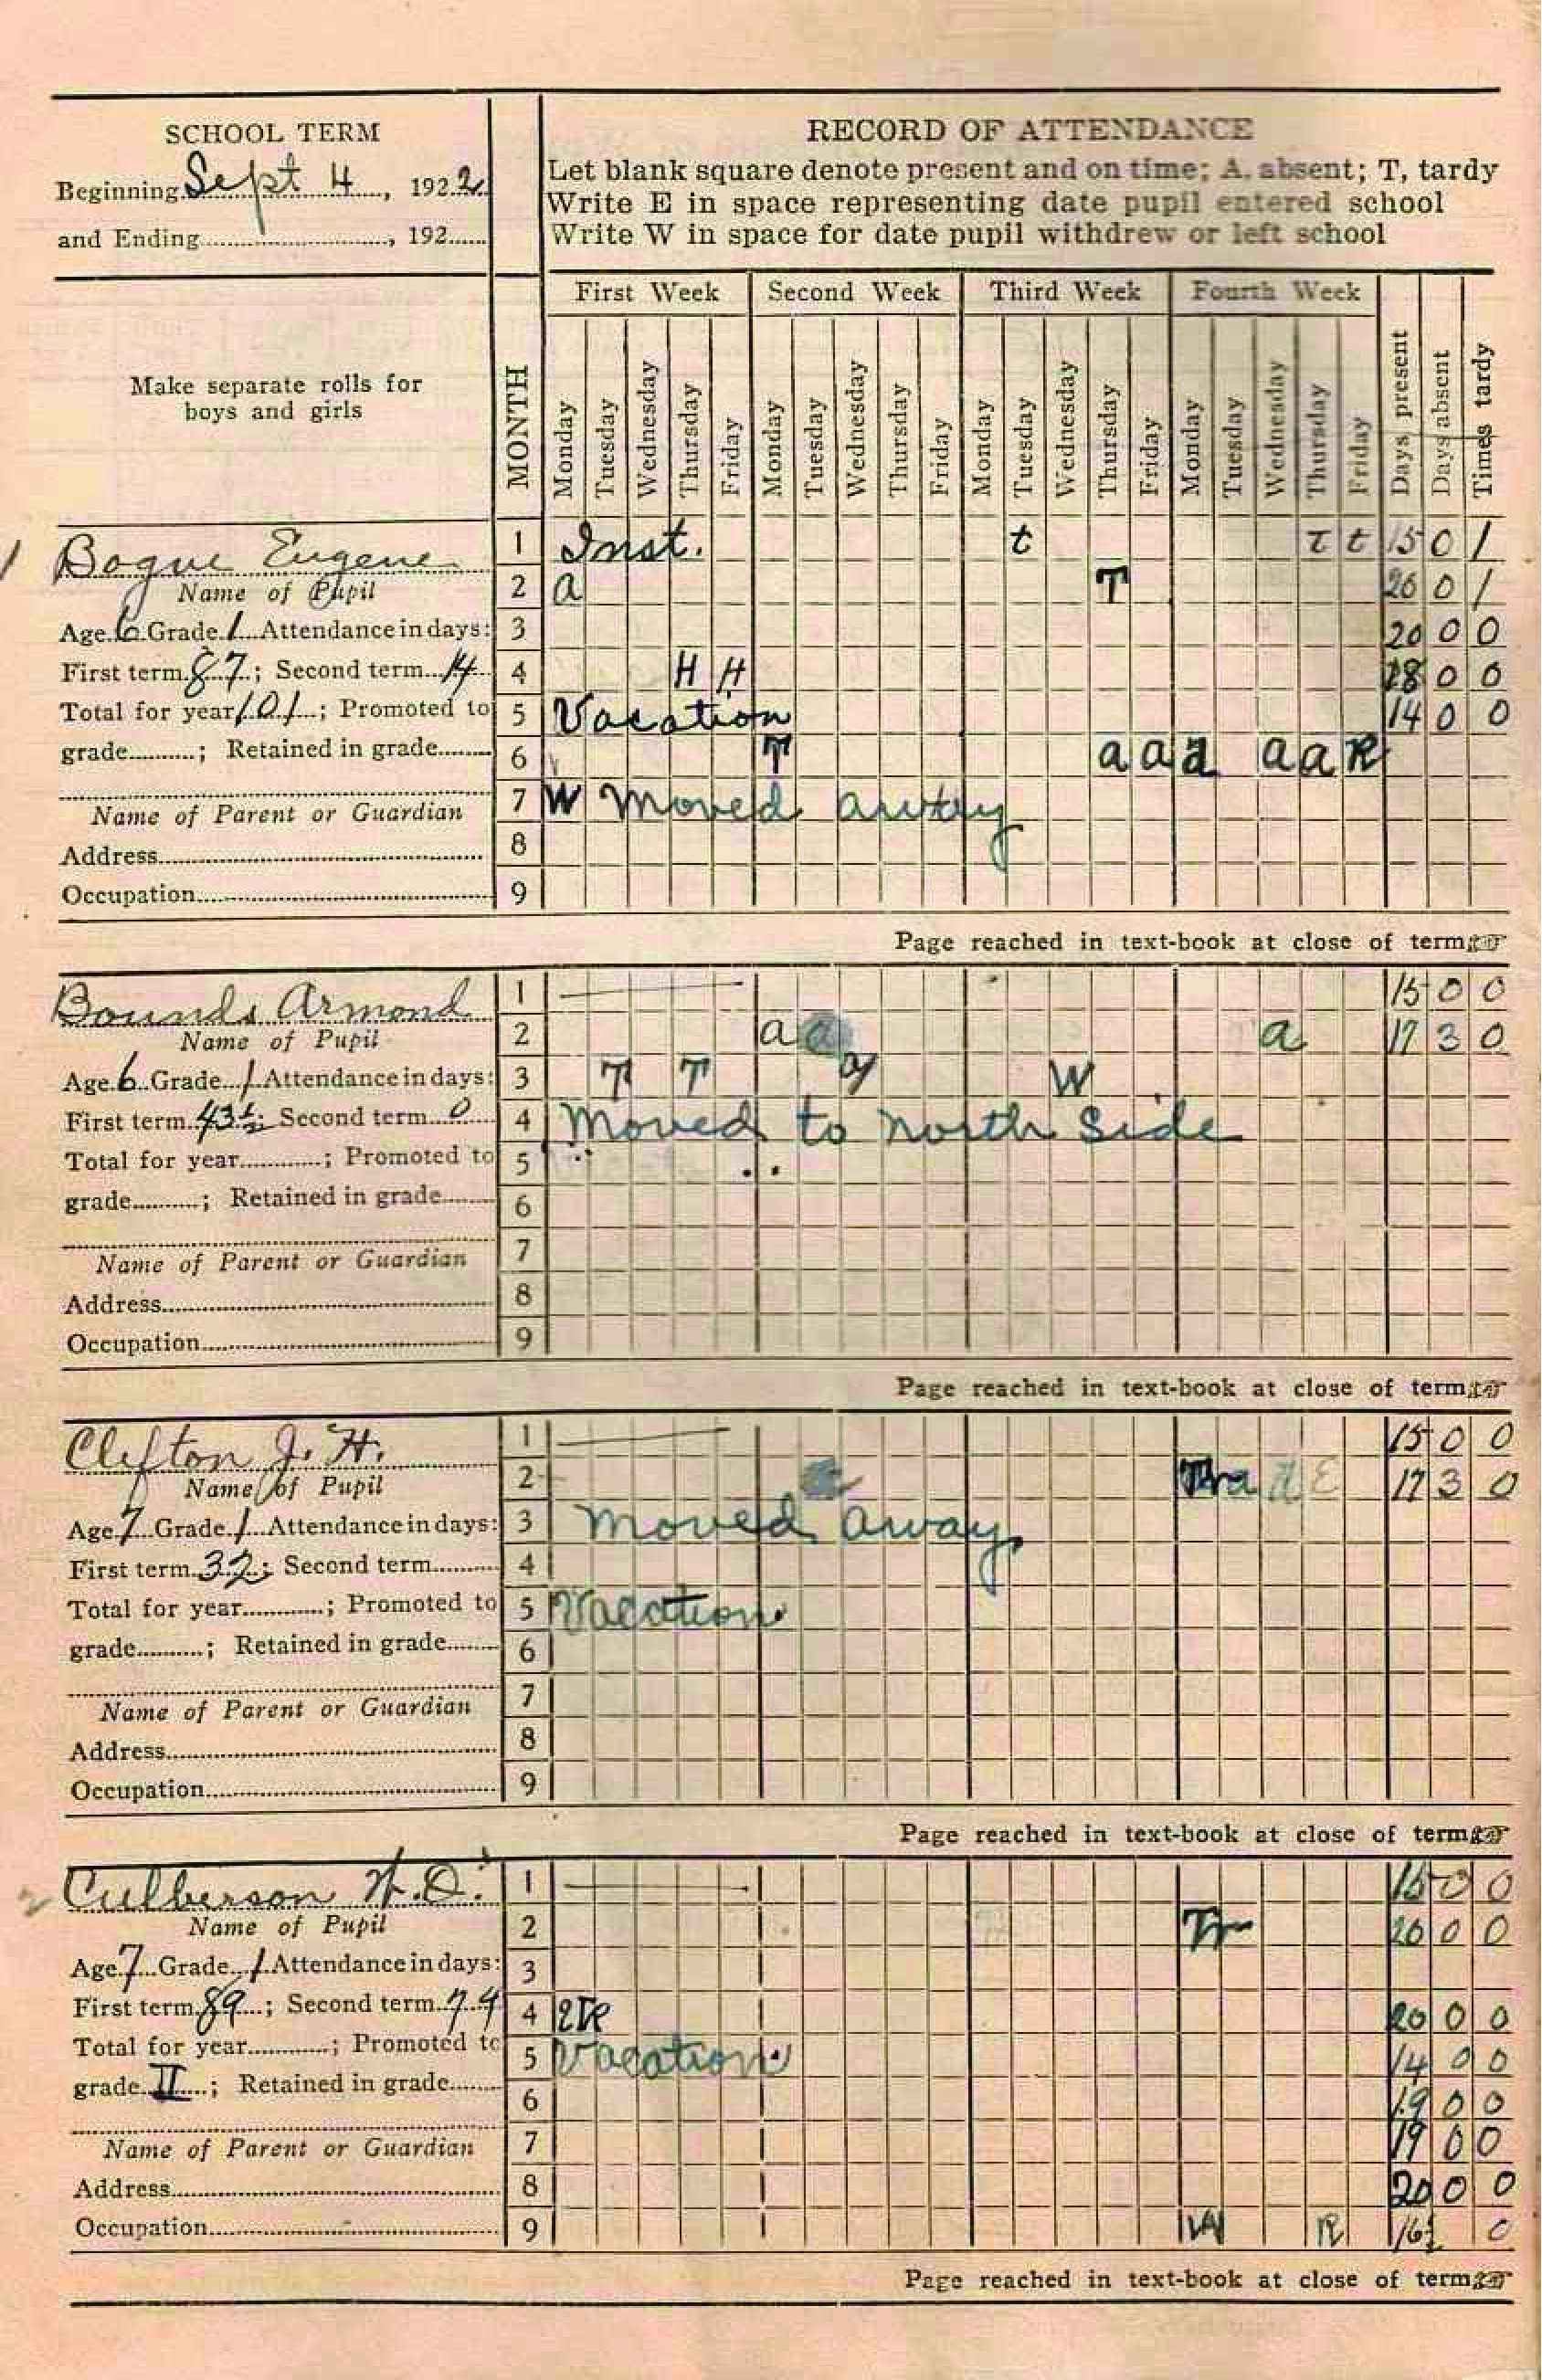 SCHOOL TERM
Beginning Sept 4, 1922
and Ending, 192
RECORD OF ATTENDANCE
Let blank square denote present and on time; A. absent; T, tardy
Write E in space representing date pupil entered school
Write W in space for date pupil withdrew or left school
Make separate rolls for
boys and girls
MONTH
First Week Second Week Third Week Fourth Week
Monday Tuesday Wednesday Thursday Friday Monday Tuesday Wednesday Thursday Friday Monday Tuesday Wednesday Thursday Friday Monday Tuesday Wednesday Thursday Friday Days present Days absent Times tardy
1 Bogue Eugene
Name of Pupil
Age 6 Grade 1 Attendance in days:
First term 87; Second term 14
Total for year 101; Promoted to
grade; Retained in grade
Name of Parent or Guardian
Address
Occupation
1 Inst. t t t 15 0 1
2 a T 20 0 1
3 20 0 0
4 H H 18 0 0
5 Vacation 14 0 0
6 T a a a a a R
7 W moved away
8
9
Page reached in text-book at close of term
Bounds Armond
Name of Pupil
Age 6 Grade 1 Attendance in days:
First term 43½; Second term 0
Total for year; Promoted to
grade; Retained in grade
Name of Parent or Guardian
Address
Occupation
1 15 0 0
2 a a a 17 3 0
3 T T W
4 Moved to north Side
5
6
7
8
9
Page reached in text-book at close of term
Clefton J. H.
Name of Pupil
Age 7 Grade 1 Attendance in days:
First term 32; Second term
Total for year; Promoted to
grade; Retained in grade
Name of Parent or Guardian
Address
Occupation
1 15 0 0
2 17 3 0
3 moved away
4
5 Vacation
6
7
8
9
Page reached in text-book at close of term
Culberson H.O.
Name of Pupil
Age 7 Grade 1 Attendance in days:
First term 89; Second term 74
Total for year; Promoted to
grade II; Retained in grade
Name of Parent or Guardian
Address
Occupation
1 15 0 0
2 Tr 20 0 0
3
4 20 0 0
5 Vacation 14 0 0
6 19 0 0
7 19 0 0
8 20 0 0
9 W R 16½ 0
Page reached in text-book at close of term